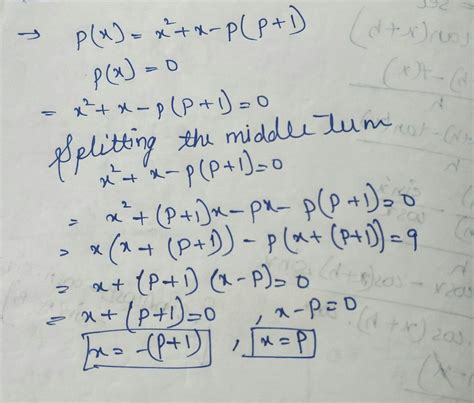 → p(x) = x²+x-p(p+1)
p(x) = 0
= x²+x-p(p+1)=0
Splitting the middle Tum
x²+x-p(p+1)=0
= x²+(p+1)x-px-p(p+1)=0
= x(x+(p+1))-p(x+(p+1))=9
= x+(p+1)(x-p)=0
= x+(p+1)=0, x-p=0
x=-(p+1), x=p